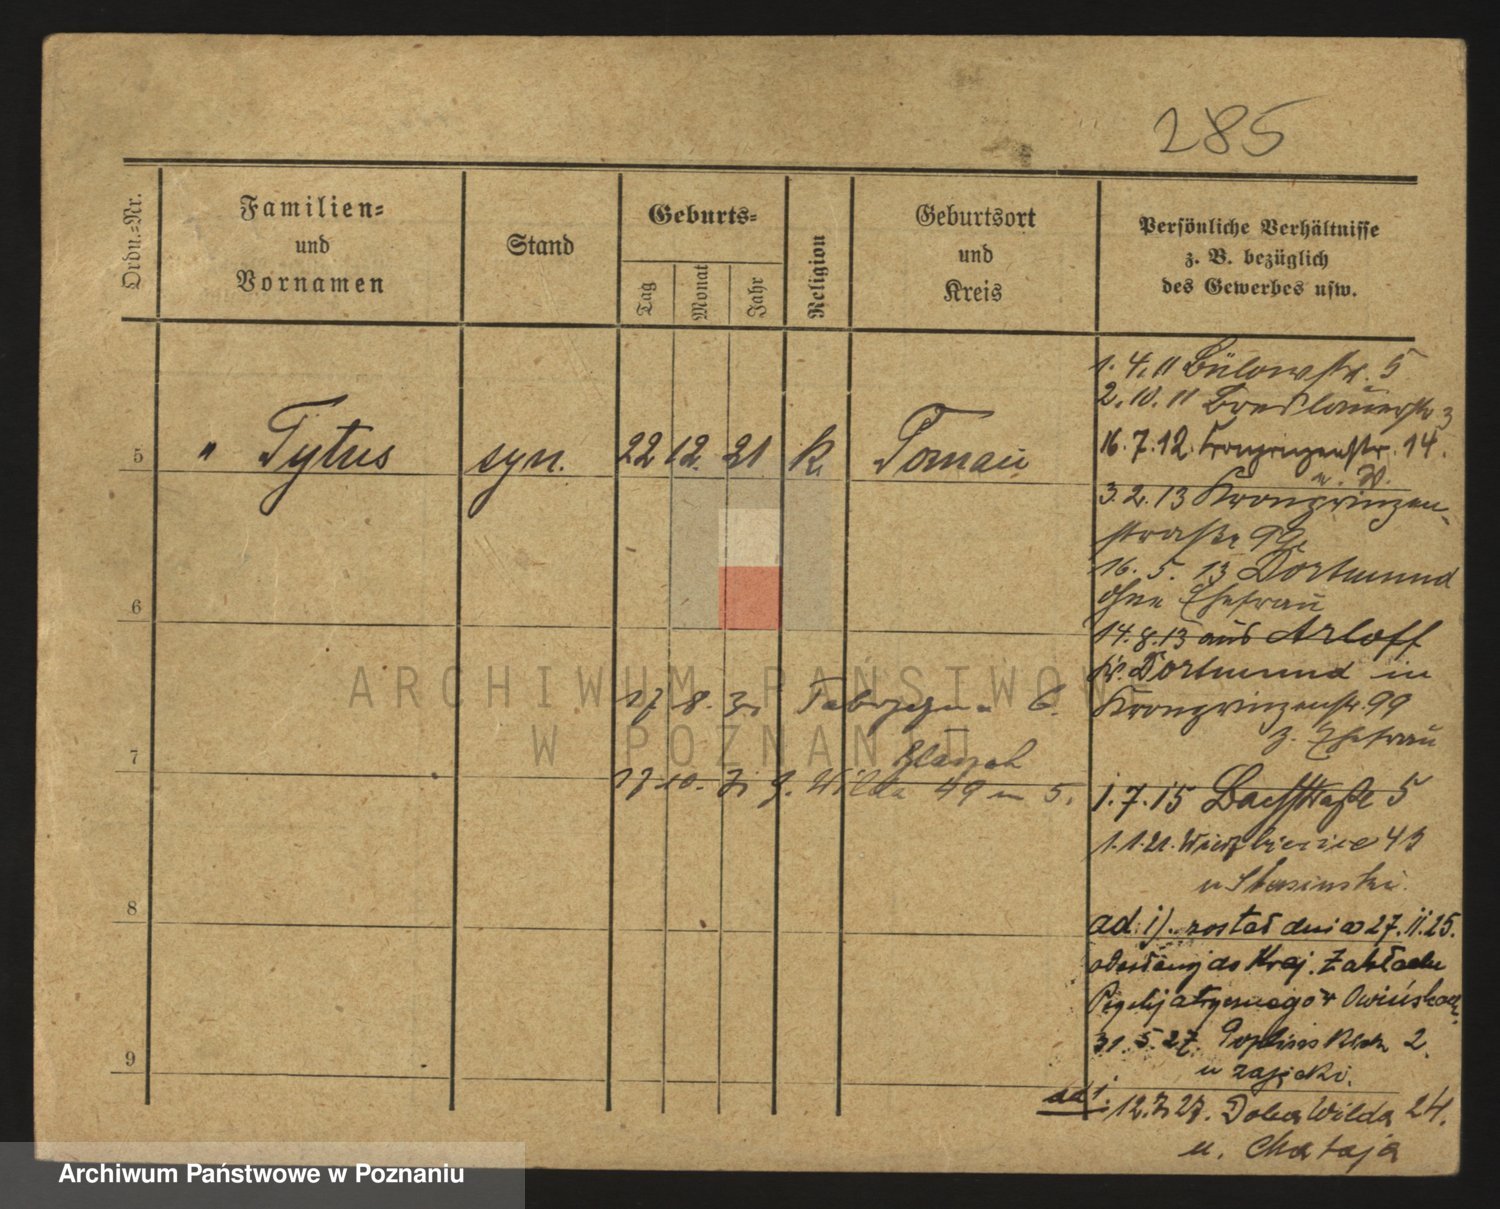 285
Ordn.=Nr.
Familien=
und
Vornamen
Stand
Geburts=
Tag
Monat
Jahr
Religion
Geburtsort
und
Kreis
Persönliche Verhältnisse
z. B. bezüglich
des Gewerbes usw.
5
" Tytus
syn.
22
12.
21
k.
Poznań
6
7
8
9
17 8. 31
17 10. 31 G. Wilda 49 m 5.
1. 4. 11 Bülowstr. 5
2. 10. 11 Breslauerstr
16. 7. 12. Kronprinzenstr. 14.
3. 2. 13 Kronprinzen-
straße 99
16. 5. 13 Dortmund
ohne Ehefrau
14. 8. 13 aus
Kr. Dortmund in
Kronprinzenstr. 99
z. Ehefrau
1. 7. 15 Bachstraße 5
1. 1. 21. Wierzbięcice 45
u Stasinski.
ad. 1). został dnia 27. 11. 25.
odesłany do Kraj. Zakładu
Psychjatrycznego w Owińskach.
31. 5. 27. Poplińskich 2.
u Zajęcki.
ad 1. 12. 7. 27. Dolna Wilda 24.
u. Chataja
ARCHIWUM PAŃSTWOWE
W POZNANIU
Archiwum Państwowe w Poznaniu